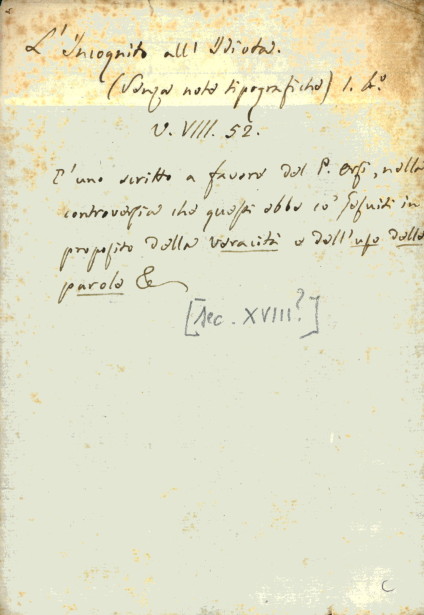 L'Incognito all'Idiota.
(Senza note tipografiche) 1. 4º
V. VIII. 52.
E' uno scritto a favore del P. Orsi, nella
controversia che questi ebbe co' Gesuiti in
proposito della veracità e dell'uso delle
parole &
[sec. XVIII?]
C